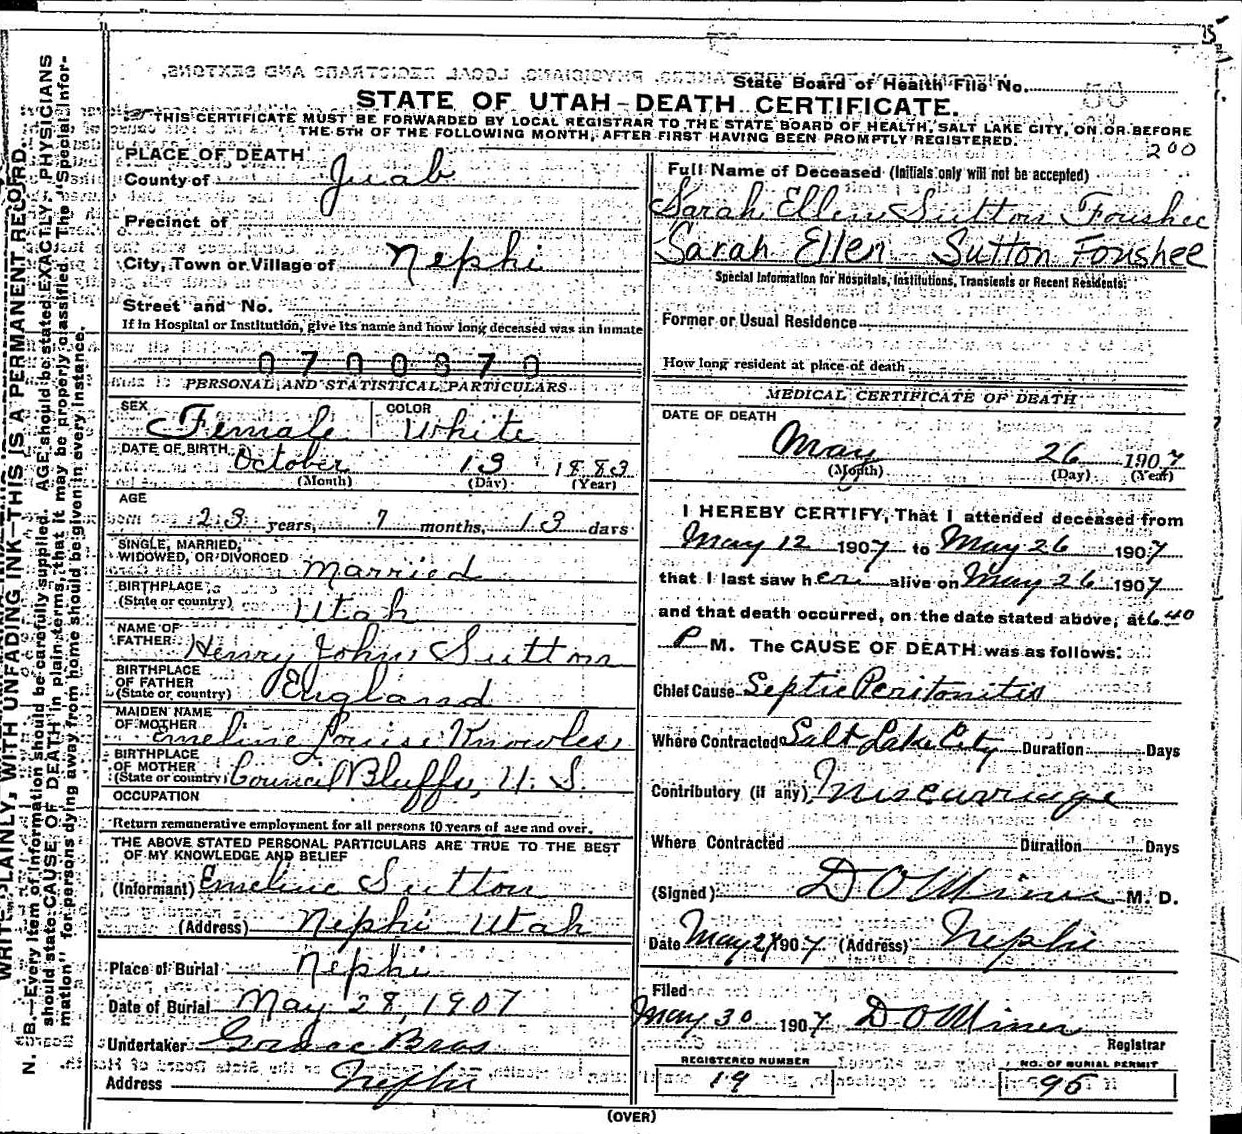 State Board of Health File No. 50
STATE OF UTAH—DEATH CERTIFICATE.
THIS CERTIFICATE MUST BE FORWARDED BY LOCAL REGISTRAR TO THE STATE BOARD OF HEALTH, SALT LAKE CITY, ON OR BEFORE
THE 5TH OF THE FOLLOWING MONTH, AFTER FIRST HAVING BEEN PROMPTLY REGISTERED.
200
PLACE OF DEATH
County of Juab
Precinct of
City, Town or Village of Nephi
Street and No.
If in Hospital or Institution, give its name and how long deceased was an inmate
0700870
PERSONAL AND STATISTICAL PARTICULARS
SEX Female COLOR White
DATE OF BIRTH October 13 1883
(Month) (Day) (Year)
AGE
23 years, 7 months, 13 days
SINGLE, MARRIED,
WIDOWED, OR DIVORCED Married
BIRTHPLACE
(State or country) Utah
NAME OF
FATHER Henry John Sutton
BIRTHPLACE
OF FATHER
(State or country) England
MAIDEN NAME
OF MOTHER Emeline Louise Knowles
BIRTHPLACE
OF MOTHER
(State or country) Council Bluffs, U. S.
OCCUPATION
Return remunerative employment for all persons 10 years of age and over.
THE ABOVE STATED PERSONAL PARTICULARS ARE TRUE TO THE BEST
OF MY KNOWLEDGE AND BELIEF
(Informant) Emeline Sutton
(Address) Nephi Utah
Place of Burial Nephi
Date of Burial May 28, 1907
Undertaker Bros
Address Nephi
Full Name of Deceased (Initials only will not be accepted)
Sarah Ellen Sutton Foushee
Sarah Ellen Sutton Foushee
Special Information for Hospitals, Institutions, Transients or Recent Residents:
Former or Usual Residence
How long resident at place of death
MEDICAL CERTIFICATE OF DEATH
DATE OF DEATH
May 26 1907
(Month) (Day) (Year)
I HEREBY CERTIFY, That I attended deceased from
May 12 1907 to May 26 1907
that I last saw her alive on May 26 1907
and that death occurred, on the date stated above, at 6.40
P M. The CAUSE OF DEATH was as follows:
Chief Cause Septic Peritonitis
Where Contracted Salt Lake City Duration Days
Contributory (if any) Miscarriage
Where Contracted Duration Days
(Signed) D O Miner M. D.
Date May 27 1907 (Address) Nephi
Filed
May 30 1907 D O Miner
Registrar
REGISTERED NUMBER
19
NO. OF BURIAL PERMIT
95
(OVER)
WRITE PLAINLY, WITH UNFADING INK—THIS IS A PERMANENT RECORD.
N. B.—Every item of information should be carefully supplied. AGE should be stated EXACTLY. PHYSICIANS
should state CAUSE OF DEATH in plain terms, that it may be properly classified. The "Special Infor-
mation" for persons dying away from home should be given in every instance.